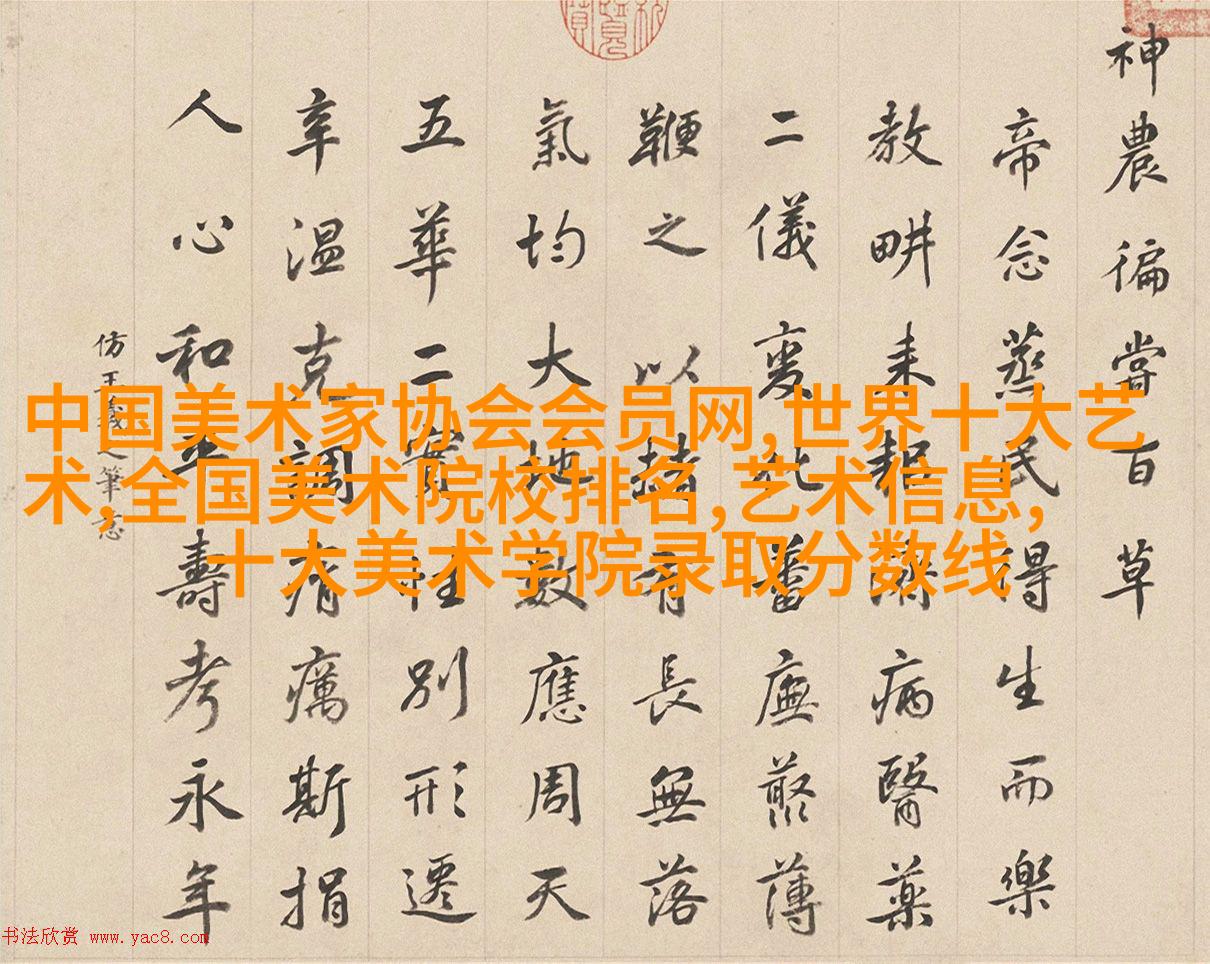 神農徧嘗百草
帝念蒸民得生而樂
教畊耒耜病醫藥
二儀變化蕃廡叢薄
鞭之以赭育長無落
氣均大地數應周天
五華二性別形遷
辛溫克調癘斯捐
人心和平壽考永年
仿王羲之筆意
中国美术家协会会员网,世界十大艺
术,全国美术院校排名,艺术信息,
十大美术学院录取分数线
书法欣赏 www.yac8.com